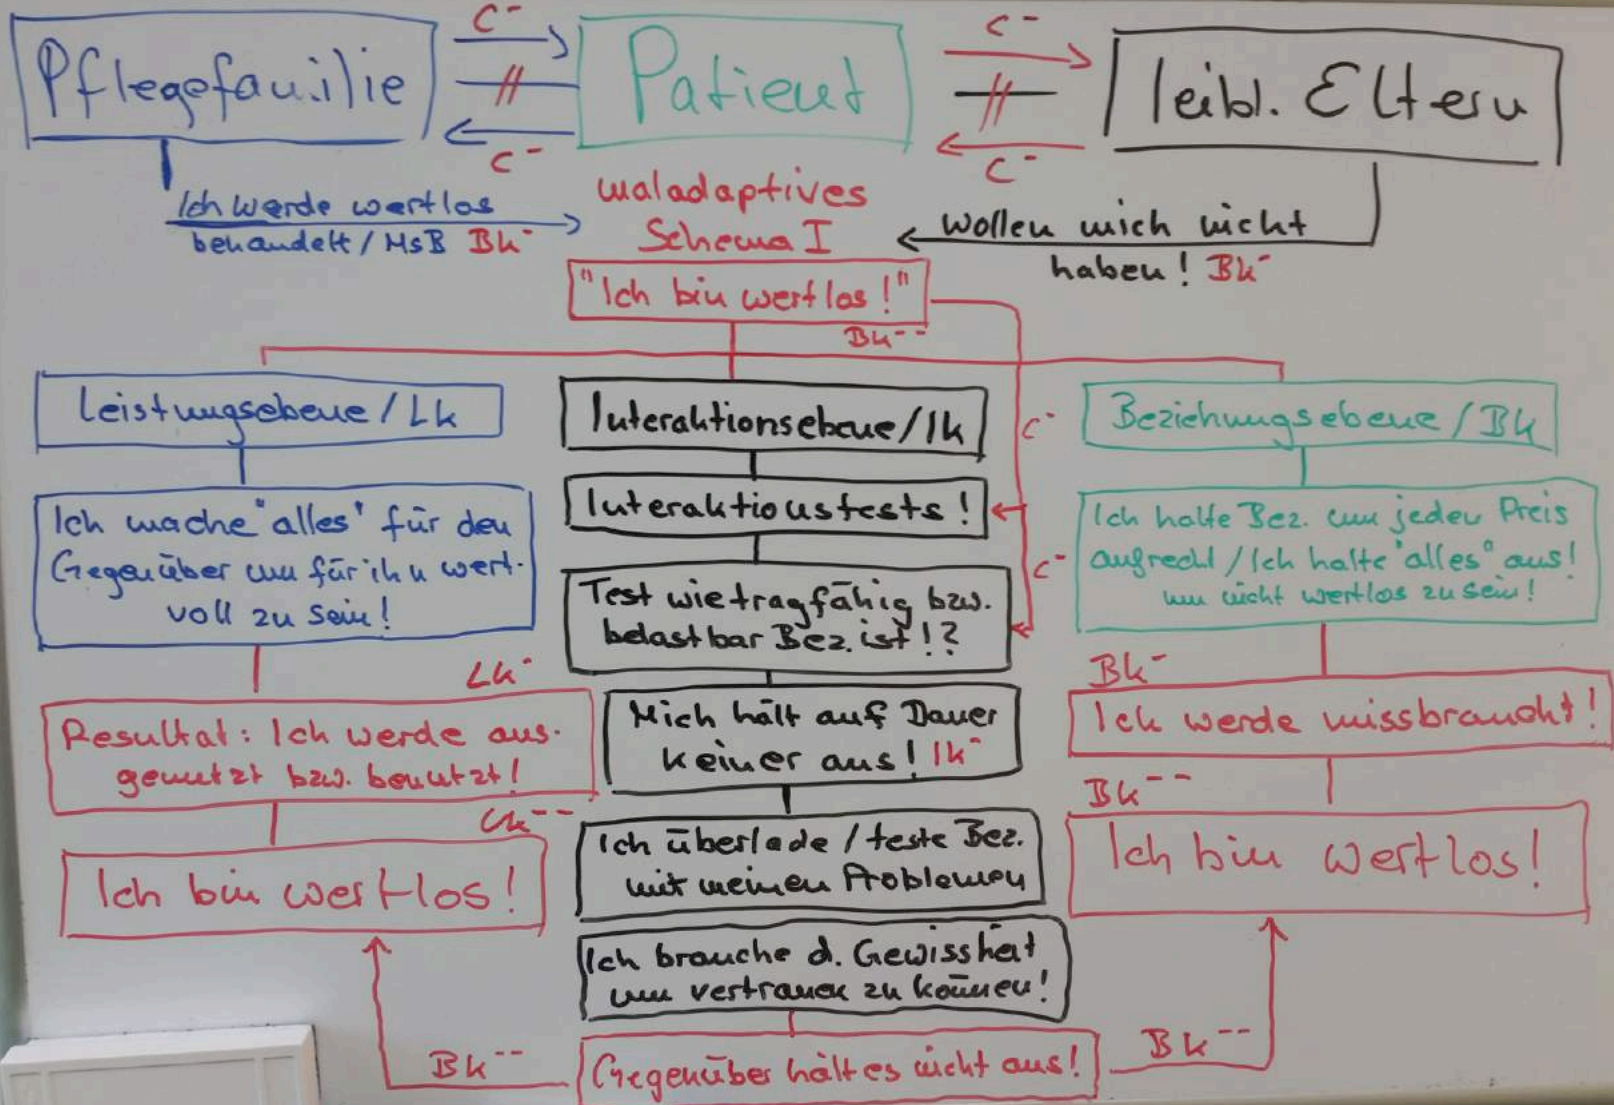 Pflegefamilie
C⁻
C⁻
Patient
C⁻
C⁻
leibl. Eltern
Ich werde wertlos
behandelt / MsB Bk⁻
maladaptives
Schema I
wollen mich nicht
haben! Bk⁻
"Ich bin wertlos!"
Bk⁻⁻
Leistungsebene / Lk
Interaktionsebene / Ik
C⁻
Beziehungsebene / Bk
Ich mache "alles" für den
Gegenüber um für ihn wert-
voll zu sein!
Interaktionstests!
C⁻
Test wie tragfähig bzw.
belastbar Bez. ist!?
Ich halte Bez. um jeden Preis
aufrecht / Ich halte "alles" aus!
um nicht wertlos zu sein!
Lk⁻
Resultat: Ich werde aus-
genutzt bzw. benutzt!
Mich hält auf Dauer
keiner aus! Ik⁻
Bk⁻
Ich werde missbraucht!
Lk⁻⁻
Ich bin wertlos!
Ich überlade / teste Bez.
mit meinen Problemen
Bk⁻⁻
Ich bin wertlos!
Ich brauche d. Gewissheit
um vertrauen zu können!
Bk⁻⁻
Gegenüber hält es nicht aus!
Bk⁻⁻